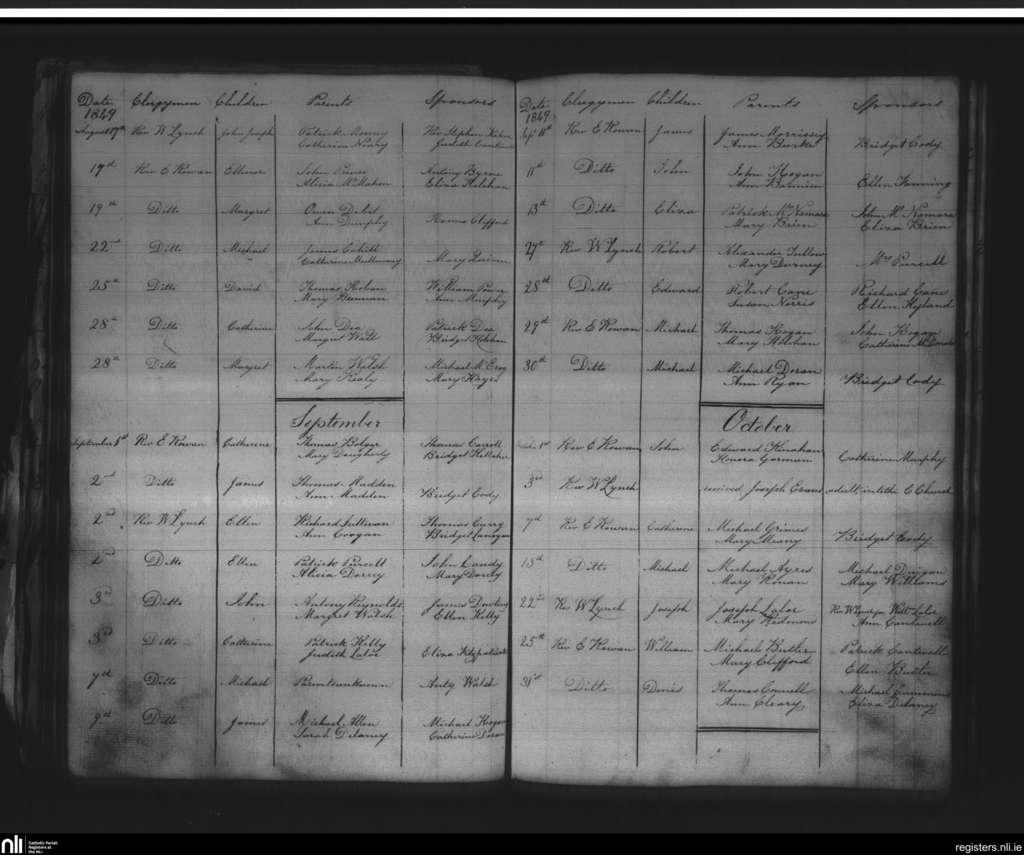 Date Clergymen Children Parents Sponsors
1849
August 17th Rev W Lynch John Joseph Patrick Rev Stephen
Catherine Nealy Judith
17th Rev E Rowan Ellinor John Power Antony Byrne
Alicia McMahon Eliza Holohan
19th Ditto Margret Owen
Ann Dunphy Clifford
22nd Ditto Michael James Cahill
Catherine Mullowney Mary Quinn
25th Ditto David Thomas Hoban William
Mary Brennan Ann Murphy
28th Ditto Catherine John Dea Patrick Dea
Margret Watt Bridget
28th Ditto Margret Martin Walsh Michael
Mary Healy Mary Hayes
September
September 1st Rev E Rowan Catherine Thomas Bolger Thomas Carroll
Mary Dougherty Bridget
2nd Ditto James Thomas Madden
Ann Madden Bridget Cody
2nd Rev W Lynch Ellen Richard Sullivan Thomas Curry
Ann Coogan Bridget Lanigan
2nd Ditto Ellen Patrick Purcell John Landy
Alicia Mary
3rd Ditto John Antony Reynolds James Dowling
Margret Walsh Ellen Kelly
3rd Ditto Catherine Patrick Kelly
Judith Lalor Eliza Fitzpatrick
7th Ditto Michael Parents unknown Anty Walsh
9th Ditto James Michael Allen Michael Hogan
Sarah Delaney Catherine Doran
Date Clergymen Children Parents Sponsors
1849
Sept 11th Rev E Rowan James James Morrissey
Ann Burke Bridget Cody
11th Ditto John John Hogan
Ann Ellen Fanning
13th Ditto Eliza Patrick McNamara John McNamara
Mary Brien Eliza Brien
27th Rev W Lynch Robert Alexander Tutlow
Mary Durney Mrs Purcell
28th Ditto Edward Robert Cane Richard Cane
Susan Norris Ellen Hyland
29th Rev E Rowan Michael Thomas Hogan John Hogan
Mary Holohan Catherine McDonald
30th Ditto Michael Michael Doran
Ann Ryan Bridget Cody
October
October 1st Rev E Rowan John Edward Hanahan
Honora Gorman Catherine Murphy
3rd Rev W Lynch received Joseph Evans adult into the C Church
7th Rev E Rowan Catherine Michael Grimes
Mary Meany Bridget Cody
13th Ditto Michael Michael Ayres Michael Dinigan
Mary Ronan Mary Williams
22nd Rev W Lynch Joseph Joseph Lalor Rev W Lynch for Walt Lalor
Mary Redmond Ann Cantwell
25th Rev E Rowan William Michael Butler Patrick Cantwell
Mary Clifford Ellen Butler
31st Ditto Denis Thomas Connell Michael
Ann Cleary Eliza Delaney
nli
Catholic Parish
Registers at
the NLI
registers.nli.ie